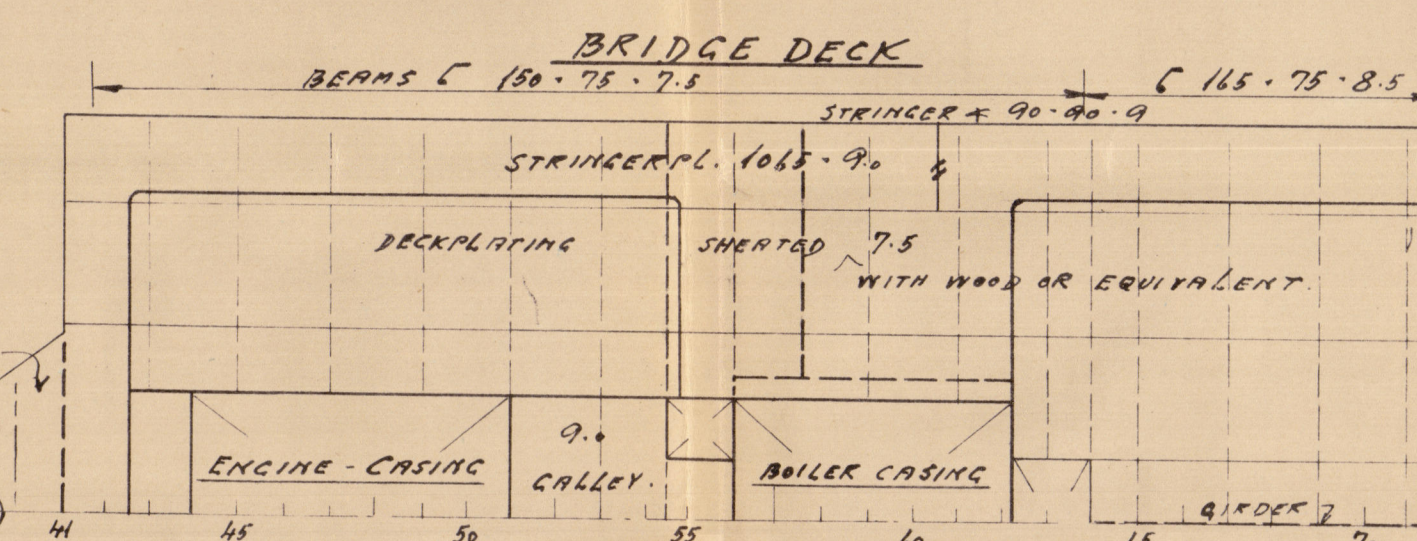 BRIDGE DECK
BEAMS [ 150 · 75 · 7.5
[ 165 · 75 · 8.5
STRINGER ∡ 90 · 90 · 9
STRINGERPL. 1065 · 9.0
DECKPLATING SHEATED 7.5
WITH WOOD OR EQUIVALENT.
9.0
ENGINE - CASING
GALLEY.
BOILER CASING
GIRDER
41 45 50 55